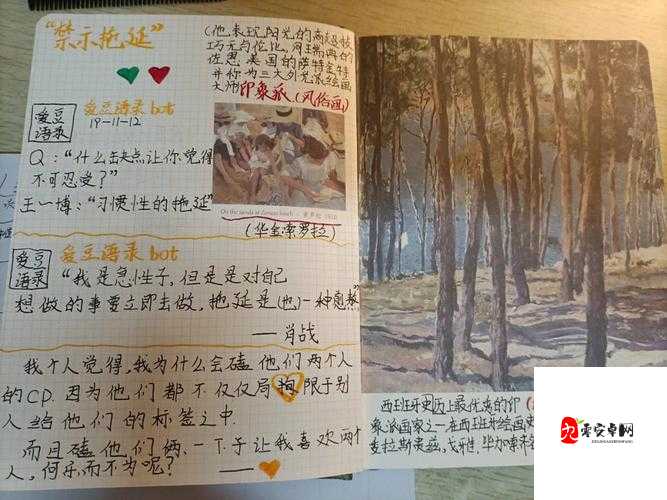 “禁示拖延”
爱豆语录
爱豆语录 bot
19-11-12
Q：“什么缺点让你觉得
不可忍受？”
王一博：“习惯性的拖延”
爱豆语录
爱豆语录 bot
“我是急性子，但是是对自己
想做的事要立即去做，拖延是(也)一种息熬”
——肖战
我个人觉得，我为什么会磕他们两个人
的CD．因为他们都不仅仅局拘限于别
人给他们的标签之中．
而且磕他们俩，一下子让我喜欢两个
人，何乐而不为呢？
（他表现阳光的高超技
巧无与伦比，同瑞典的
佐恩，美国的萨特金特
并称为三大外光派绘画
大师 印象派（风俗画）
On the sands at Zarauz beach · 索罗拉 1910
（华金·索罗拉）
西班牙史历上最优秀的印
象派画家之一在西班牙绘画史
委拉斯贵兹，戈雅，毕加索齐
零安卓网